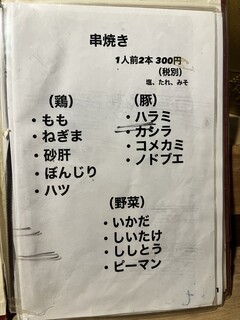 串焼き
1人前2本 300円
(税別)
塩、たれ、みそ
(鶏)
・もも
・ねぎま
・砂肝
・ぼんじり
・ハツ
(豚)
・ハラミ
・カシラ
・コメカミ
・ノドブエ
(野菜)
・いかだ
・しいたけ
・ししとう
・ピーマン
1